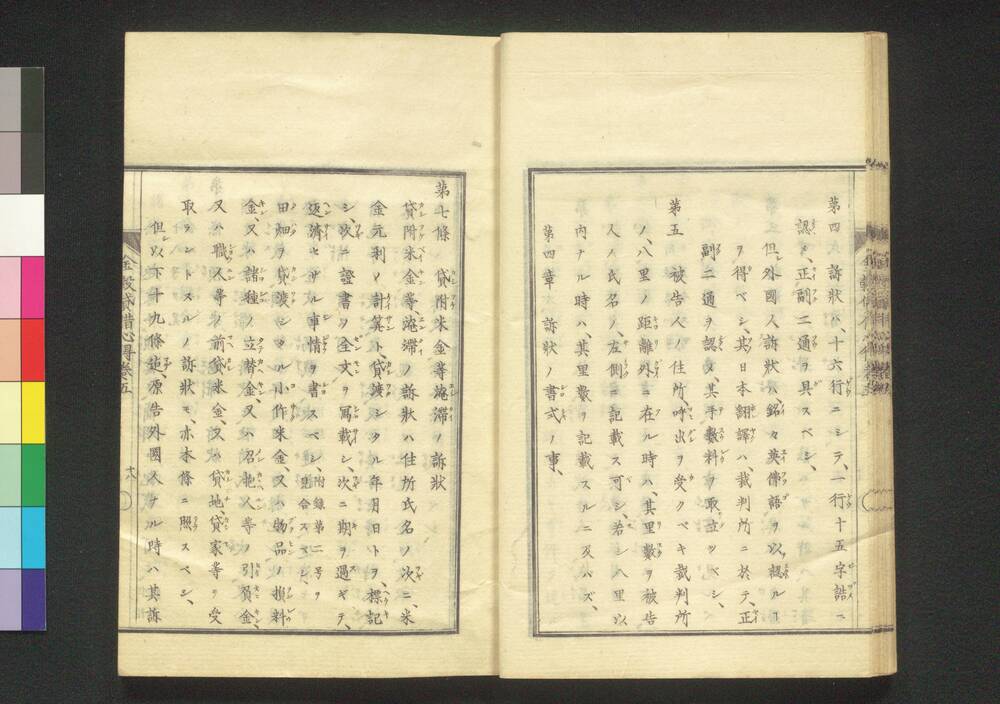 第四 訴狀ハ、十六行ニシテ、一行十五字詰ニ
認メ、正副二通ヲ具スベシ、
但シ外國人訴狀ハ、銘々英佛語ヲ以認ルヿ
ヲ得ベシ、其日本飜譯ハ、裁判所ニ於テ、正
副二通ヲ認メ、其手數料ヲ取立ツベシ、
第五 被告人ノ住所、呼出ヲ受クベキ裁判所
ノ、八里ノ距離外ニ在ル時ハ、其里數ヲ被告
人ノ氏名ノ、左側ニ記載ス可シ、若シ八里以
内ナル時ハ、其里數ヲ記載スルニ及バズ、
第四章 訴狀ノ書式ノ事、
第七條 貸附米金等淹滯ノ訴狀
貸附米金等、淹滯ノ訴狀ハ住所氏名ノ次ニ、米
金元利ノ計算ト、貸渡シタル年月日トヲ、標記
シ、次ニ證書ヲ全文ヲ寫載シ、次ニ期ヲ過ギテ、
返濟セザル事情ヲ書スベシ、附錄第二號ヲ照合スベシ、
田畑ヲ貸渡シタル小作米金、又ハ物品ノ損料
金、又ハ諸種ノ立替金、又ハ召抱人等ノ引負金、
又ハ職人等ノ前貸米金、又ハ貸地、貸家等ヲ受
取ラントスルノ訴狀モ、亦本條ニ照スベシ、
但シ以下十九條迄、原告外國人ナル時ハ其訴
金穀貸借心得卷五